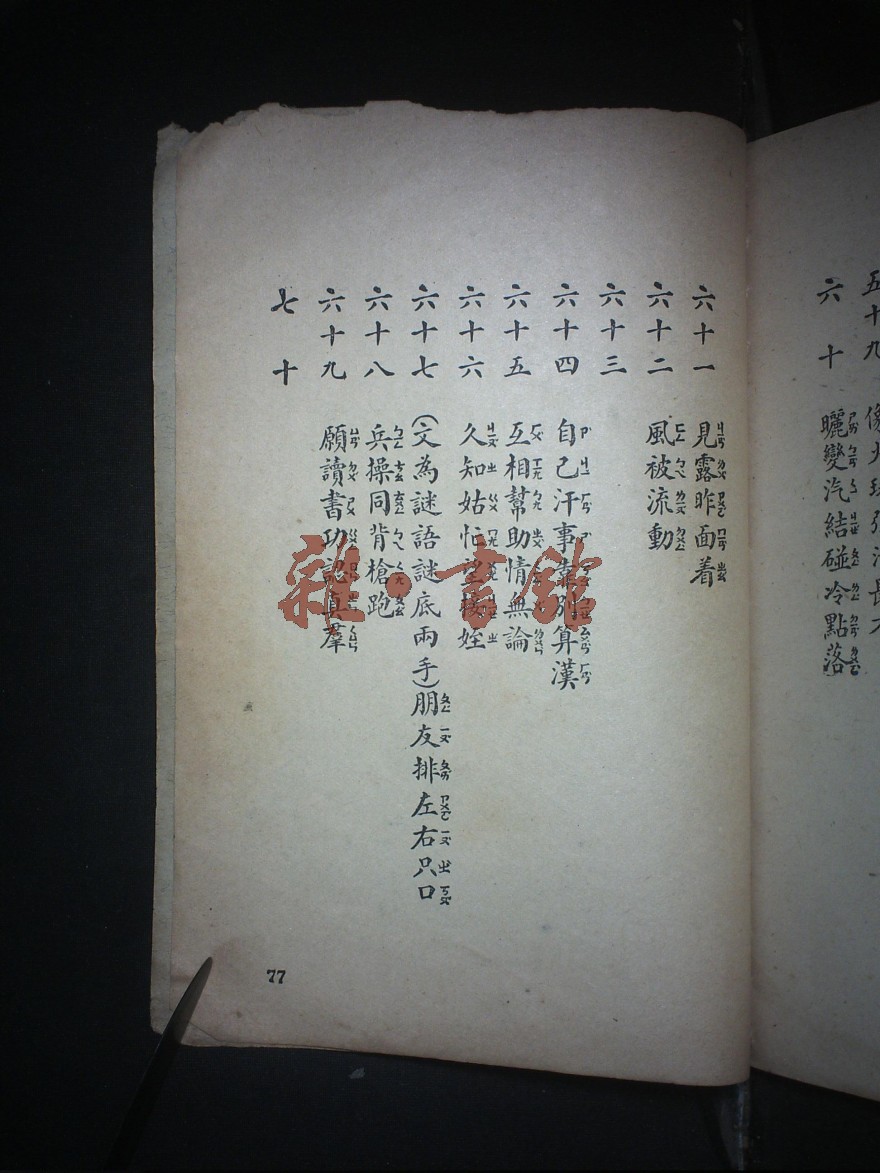 五十九
六十 曬變汽結碰冷點落
六十一 見露昨面着
六十二 風被流動
六十三
六十四 自己汗事靠別算漢
六十五 互相幫助情無論
六十六 久知姑忙望接姪
六十七 (文為謎語謎底兩手)朋友排左右只口
六十八 兵操同背槍跑
六十九 願讀書功認真羣
七十
77
雜·書館